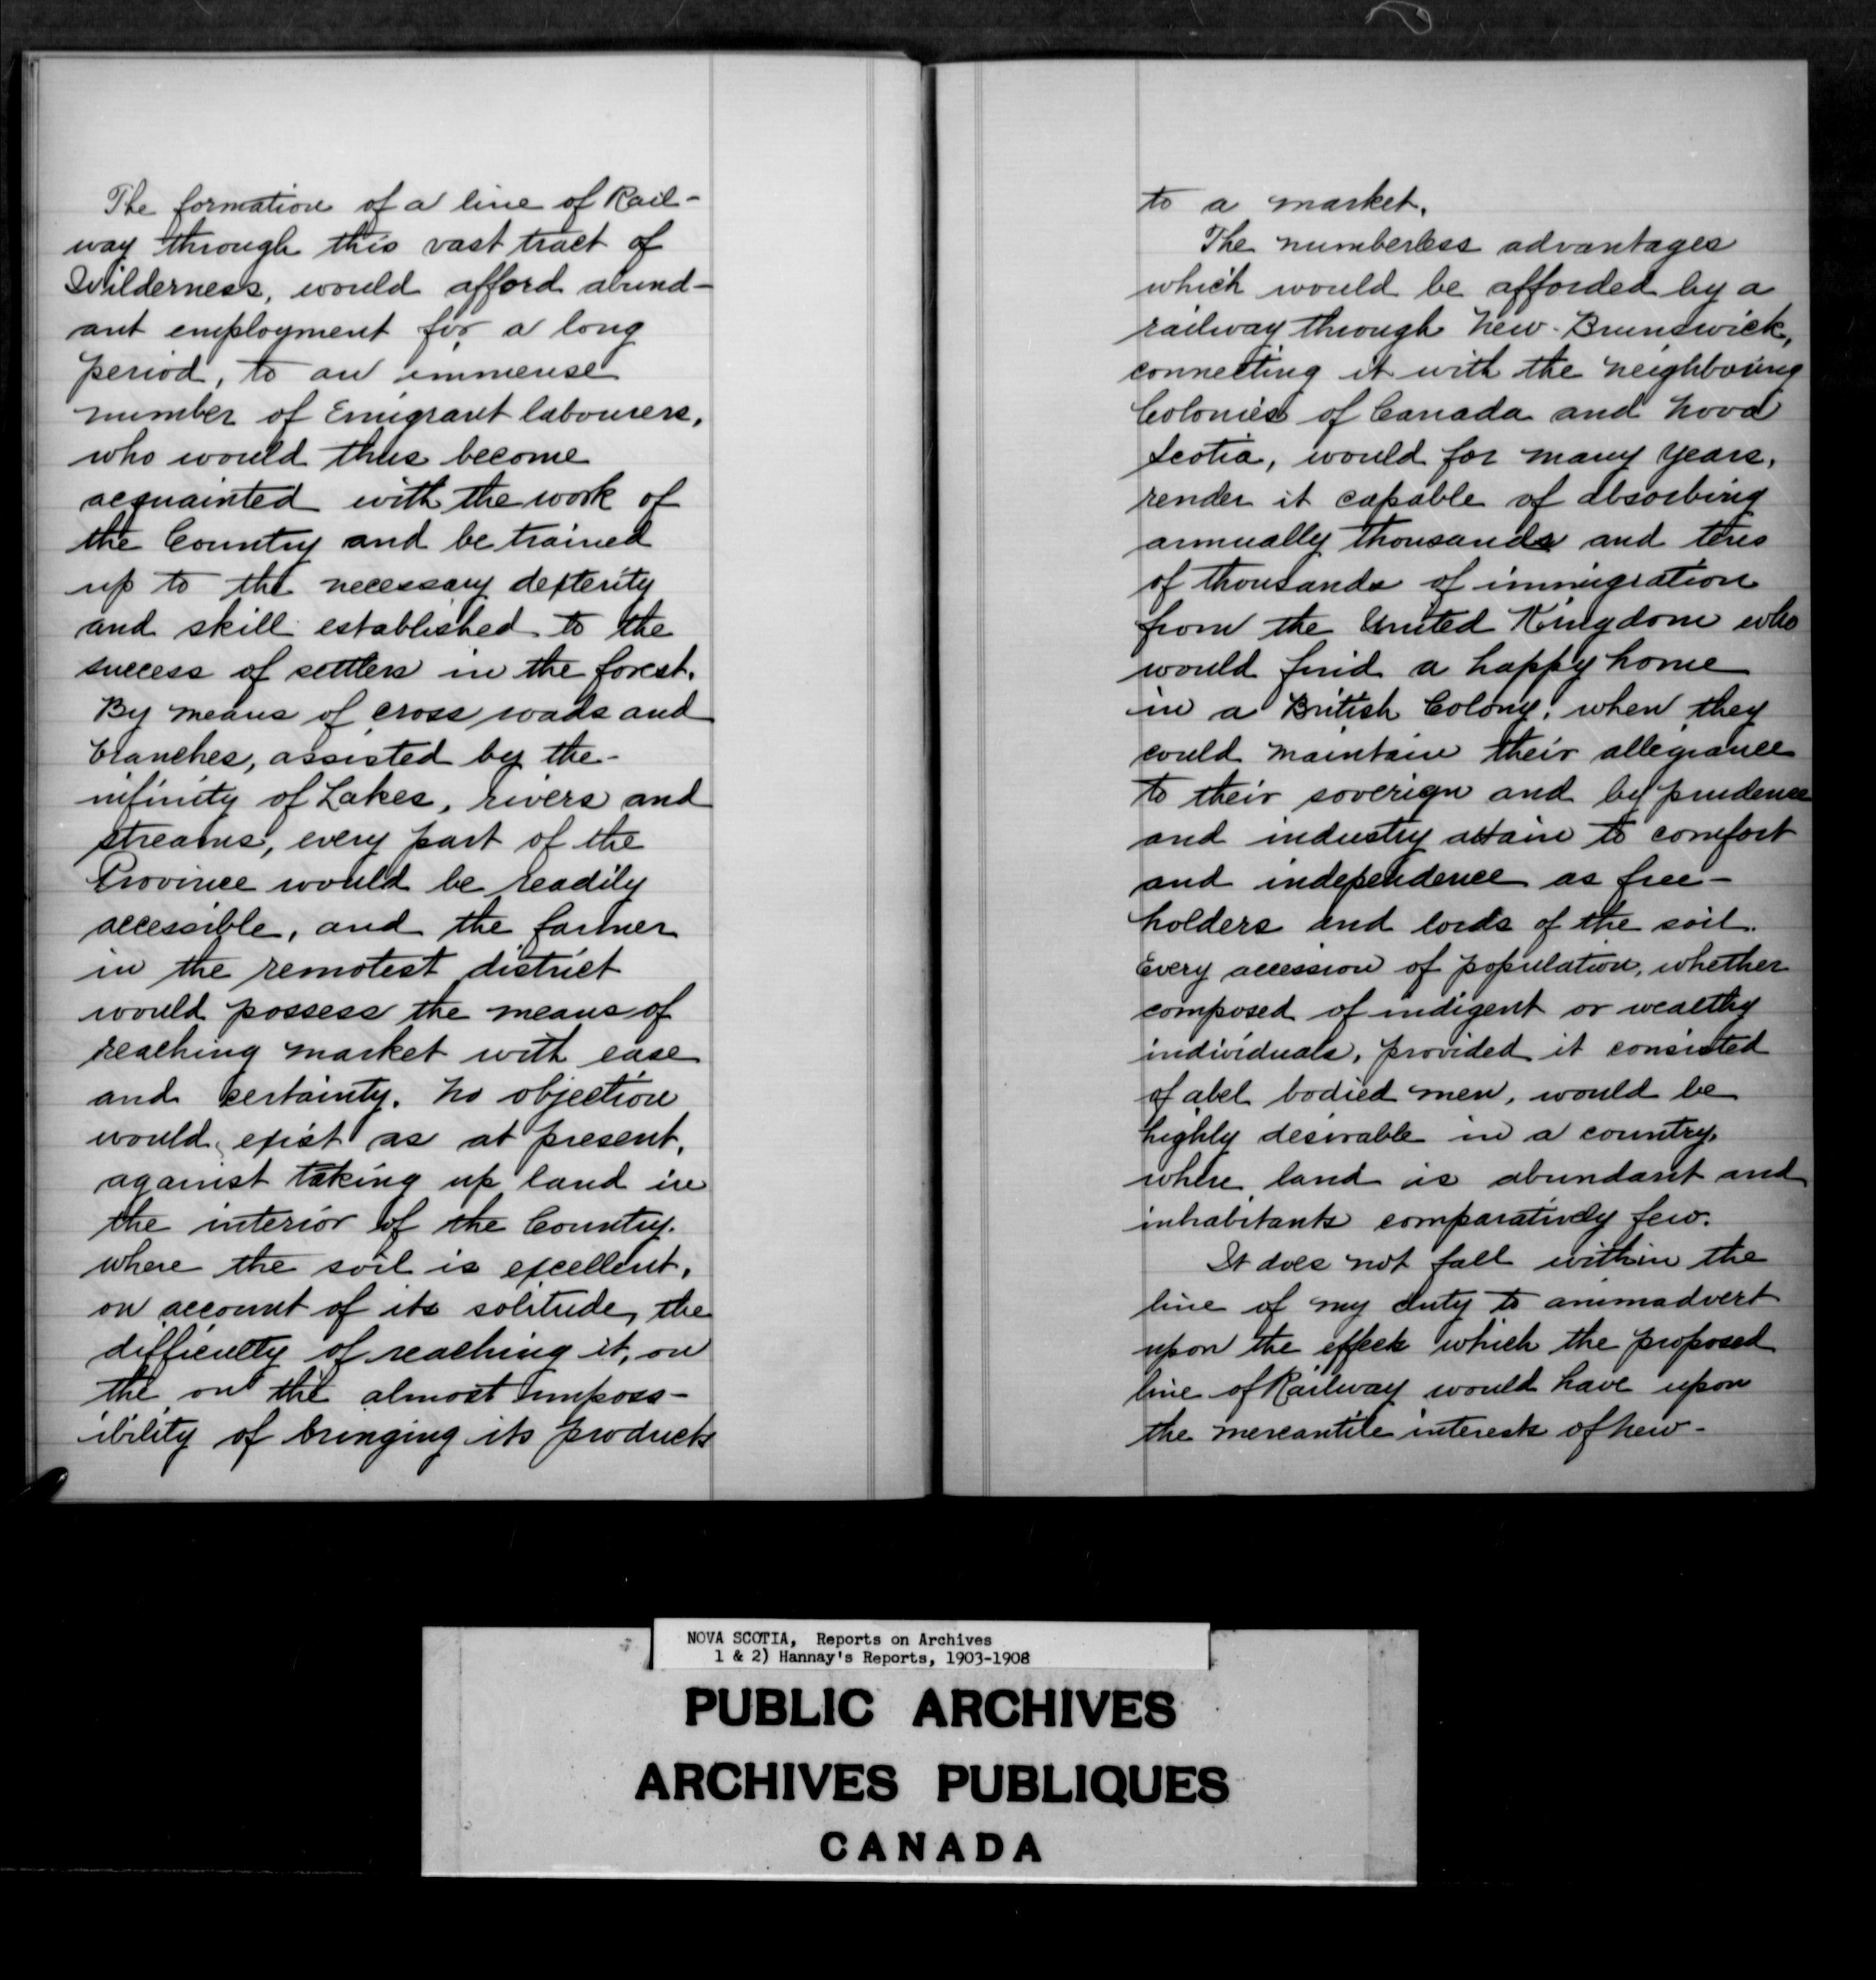 The formation of a line of Rail-
way through this vast tract of
Wilderness, would afford abund-
ant employment for a long
period, to an immense
number of Emigrant labourers,
who would thus become
acquainted with the work of
the Country and be trained
up to the necessary dexterity
and skill established to the
success of settlers in the forest.
By means of cross roads and
branches, assisted by the-
infinity of Lakes, rivers and
streams, every part of the
Province would be readily
accessible, and the farmer
in the remotest district
would possess the means of
reaching market with ease
and certainty. No objection
would exist as at present,
against taking up land in
the interior of the Country.
where the soil is excellent,
on account of its solitude, the
difficulty of reaching it, on
the on the almost imposs-
ibility of bringing its products
to a market.
The numberless advantages
which would be afforded by a
railway through New-Brunswick,
connecting it with the neighbouring
Colonies of Canada and Nova
Scotia, would for many years,
render it capable of absorbing
annually thousands and tens
of thousands of immigration
from the United Kingdom who
would find a happy home
in a British Colony, when they
could maintain their allegiance
to their soverign and by prudence
and industry attain to comfort
and independence as free-
holders and lords of the soil.
Every accession of population, whether
composed of indigent or wealthy
individuals, provided it consisted
of abel bodied men, would be
highly desirable in a country,
where land is abundant and
inhabitants comparatively few.
It does not fall within the
line of my duty to animadvert
upon the effect which the proposed
line of Railway would have upon
the mercantile interests of New-
NOVA SCOTIA, Reports on Archives
1 & 2) Hannay's Reports, 1903-1908
PUBLIC ARCHIVES
ARCHIVES PUBLIQUES
CANADA